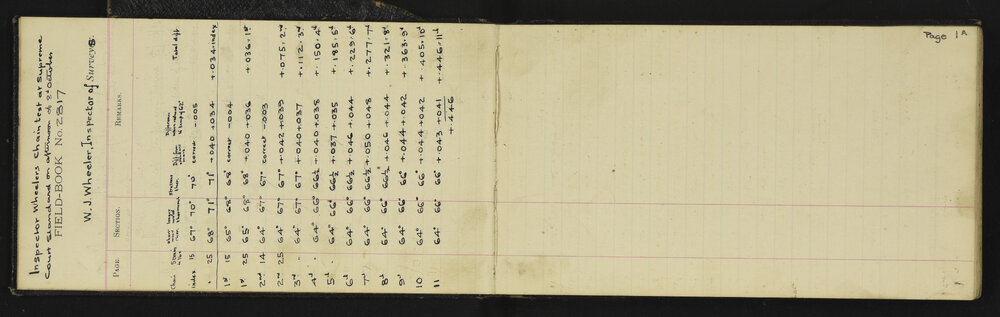 Inspector Wheelers Chain test at Supreme
Court Standard on afternoon of 2nd October
FIELD-BOOK No. 2817
W. J. Wheeler, Inspector of Surveys.
PAGE. SECTION. REMARKS.
Chain Strain Total diff
Index 15 67° 70° 70° correct -.005
" 25 68° 71° 71° +.040 +.034 +.034.index
1st 15 65° 68° 68° correct -.004
1st 25 65° 68° 68° +.040 +.036 +.036.1st
2nd 14 64° 67° 67° correct -.003
2nd 25 64° 67° 67° +.042 +.039 +.075.2nd
3d . 64° 67° 67° +.040 +.037 +.112.3d
4d . 64° 66° 66½ +.040 +.038 +.150.4d
5d . 64° 66° 66½ +.037 +.035 +.185.5d
6d 64° 66° 66½ +.046 +.044 +.229.6d
7d 64° 66° 66½ +.050 +.048 +.277.7d
8d 64° 66° 66½° +.046 +.044 +.321.8d
9d 64° 66° 66° +.044 +.042 +.363.9d
10 64° 66° 66° +.044 +.042 +.405.10d
11 64° 66° 66° +.043 +.041 +.446.11d
+.446
Page 1A